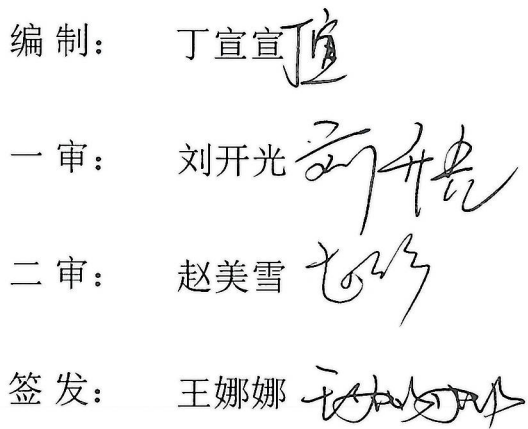 编 制： 丁宣宣
一 审： 刘开光 刘开光
二 审： 赵美雪
签 发： 王娜娜 王娜娜